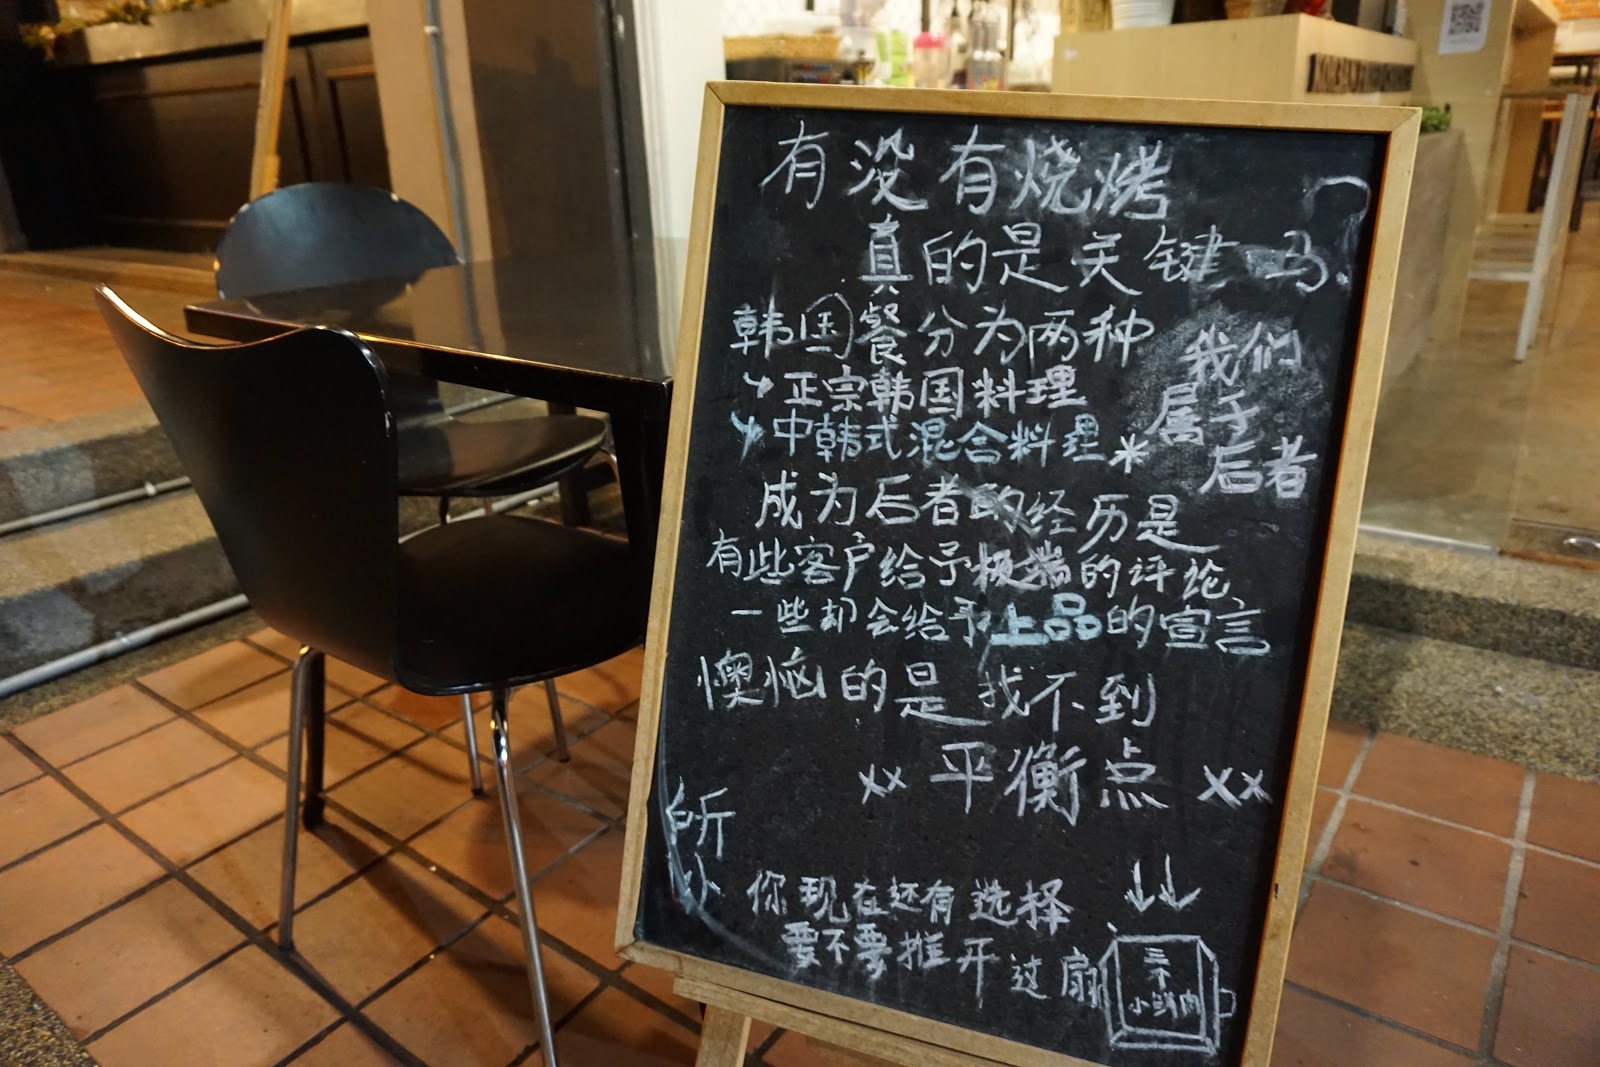 有没有烧烤
真的是关键吗?
韩国餐分为两种
正宗韩国料理
中韩式混合料理*
我们
属于
后者
成为后者的经历是
有些客户给予极端的评论
一些却会给予上品的宣言
懊恼的是找不到
xx 平衡点 xx
所以
你现在还有选择
要不要推开过扇
三个
小鲜肉